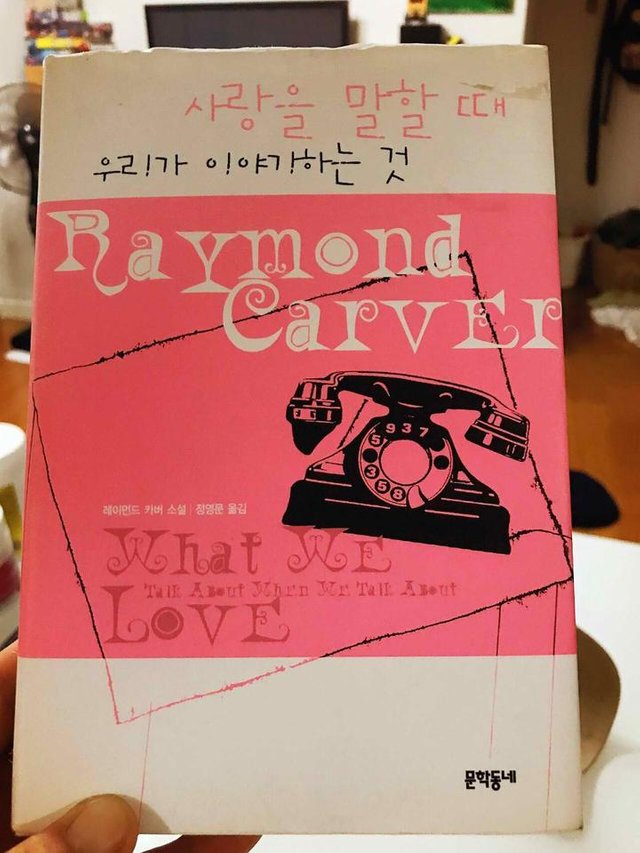 사랑을 말할 때
우리가 이야기하는 것
Raymond
Carver
9 3 7
5
3 5 8
레이먼드 카버 소설 | 정영문 옮김
What We
Talk About When We Talk About
Love
문학동네